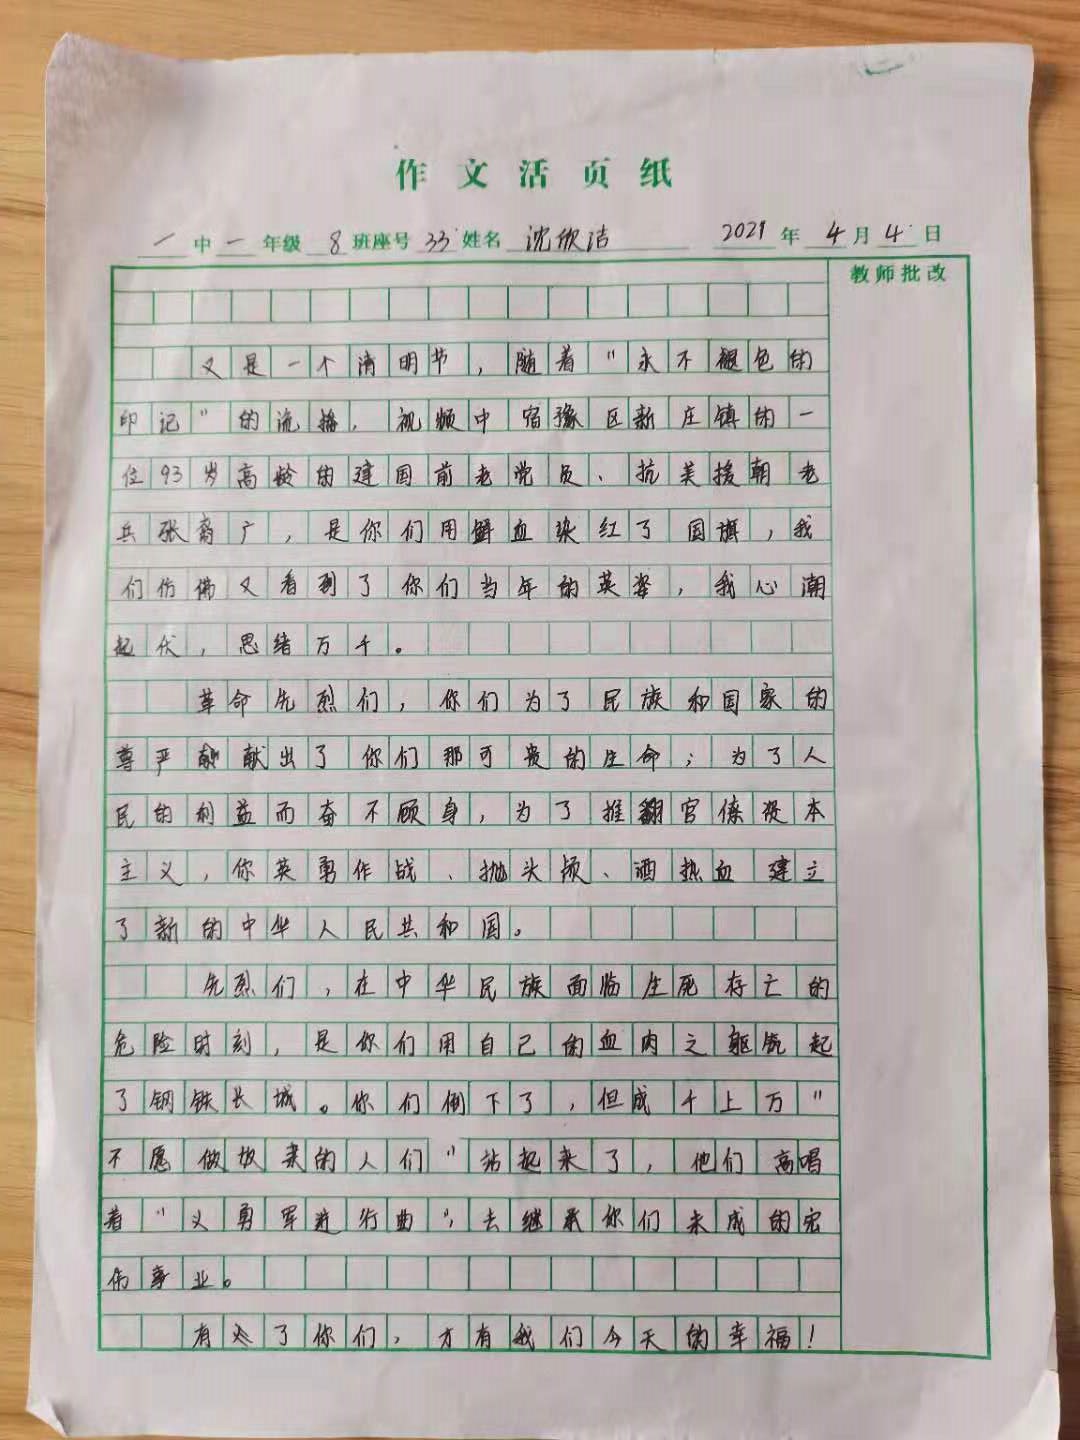 作文活页纸
一中一年级8班座号33姓名沈欣洁 2021年4月4日
教师批改
又是一个清明节，随着“永不褪色的
印记”的流播，视频中宿豫区新庄镇的一
位93岁高龄的建国前老党员、抗美援朝老
兵张裔广，是你们用鲜血染红了国旗，我
们仿佛又看到了你们当年的英姿，我心潮
起伏，思绪万千。
革命先烈们，你们为了民族和国家的
尊严献出了你们那可贵的生命；为了人
民的利益而奋不顾身，为了推翻官僚资本
主义，你英勇作战、抛头颅、洒热血建立
了新的中华人民共和国。
先烈们，在中华民族面临生死存亡的
危险时刻，是你们用自己的血肉之躯筑起
了钢铁长城。你们倒下了，但成千上万“
不愿做奴隶的人们”站起来了，他们高唱
着“义勇军进行曲”，去继承你们未成的宏
伟事业。
有了你们，才有我们今天的幸福！